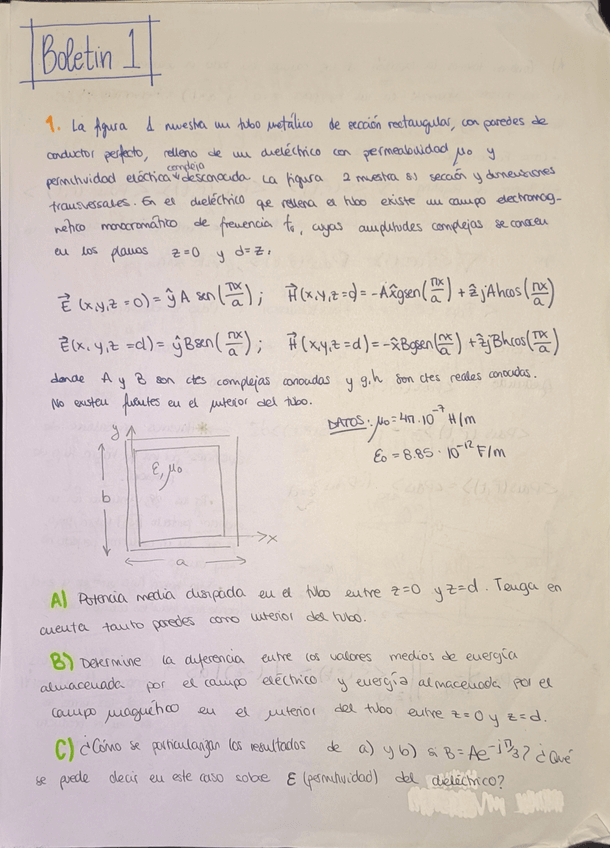 Boletín 1
1. La figura 1 muestra un tubo metálico de sección rectangular, con paredes de
conductor perfecto, relleno de un dieléctrico con permeabilidad μ₀ y
compleja
permitividad eléctrica desconocida. La figura 2 muestra su sección y dimensiones
transversales. En el dieléctrico que rellena el tubo existe un campo electromag-
nético monocromático de frecuencia f₀, cuyas amplitudes complejas se conocen
en los planos z=0 y d=z,
E⃗ (x,y,z=0) = ŷ A sen(πx/a) ; H⃗(x,y,z=d) = -Ax̂gsen(πx/a) + ẑjAhcos(πx/a)
E⃗(x,y,z=d) = ŷBsen(πx/a) ; H⃗(x,y,z=d) = -x̂Bgsen(πx/a) + ẑjBhcos(πx/a)
donde A y B son ctes complejas conocidas y g,h son ctes reales conocidas.
No existen fuentes en el interior del tubo.
DATOS: μ₀=4π·10⁻⁷ H/m
ε₀ = 8.85·10⁻¹² F/m
y
ε,μ₀
b
x
a
A) Potencia media disipada en el tubo entre z=0 y z=d. Tenga en
cuenta tanto paredes como interior del tubo.
B) Determine la diferencia entre los valores medios de energía
almacenada por el campo eléctrico y energía almacenada por el
campo magnético en el interior del tubo entre z=0 y z=d.
C) ¿Cómo se particularizan los resultados de a) y b) si B=Ae^-jπ/3? ¿Qué
se puede decir en este caso sobre ε (permitividad) del dieléctrico?